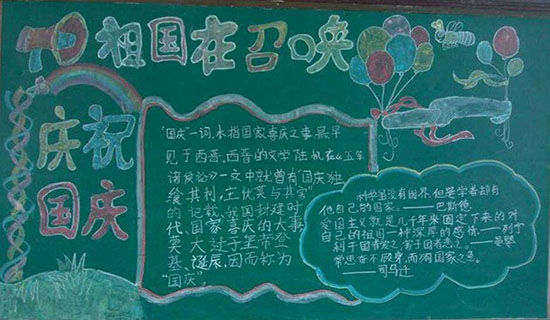 祖国在召唤
庆祝
国庆
"国庆"一词,本指国家喜庆之事,最早
见于西晋,西晋的文学陆机在《五年
诸侯论》一文中就曾有"国庆独
其利,主忧莫与其害"
的记载,我国封建时
代、国家喜庆的大事
莫大过于皇帝登
基、诞辰,因而称为
"国庆"。
科学虽没有国界,但是学者却有
他自己的国家。——巴斯德
爱国主义就是几千年来固定下来的对
自己的祖国一种深厚的感情。——列宁
利于国者爱之,害于国者恶之。——晏婴
常思奋不顾身,而殉国家之急。
——司马迁